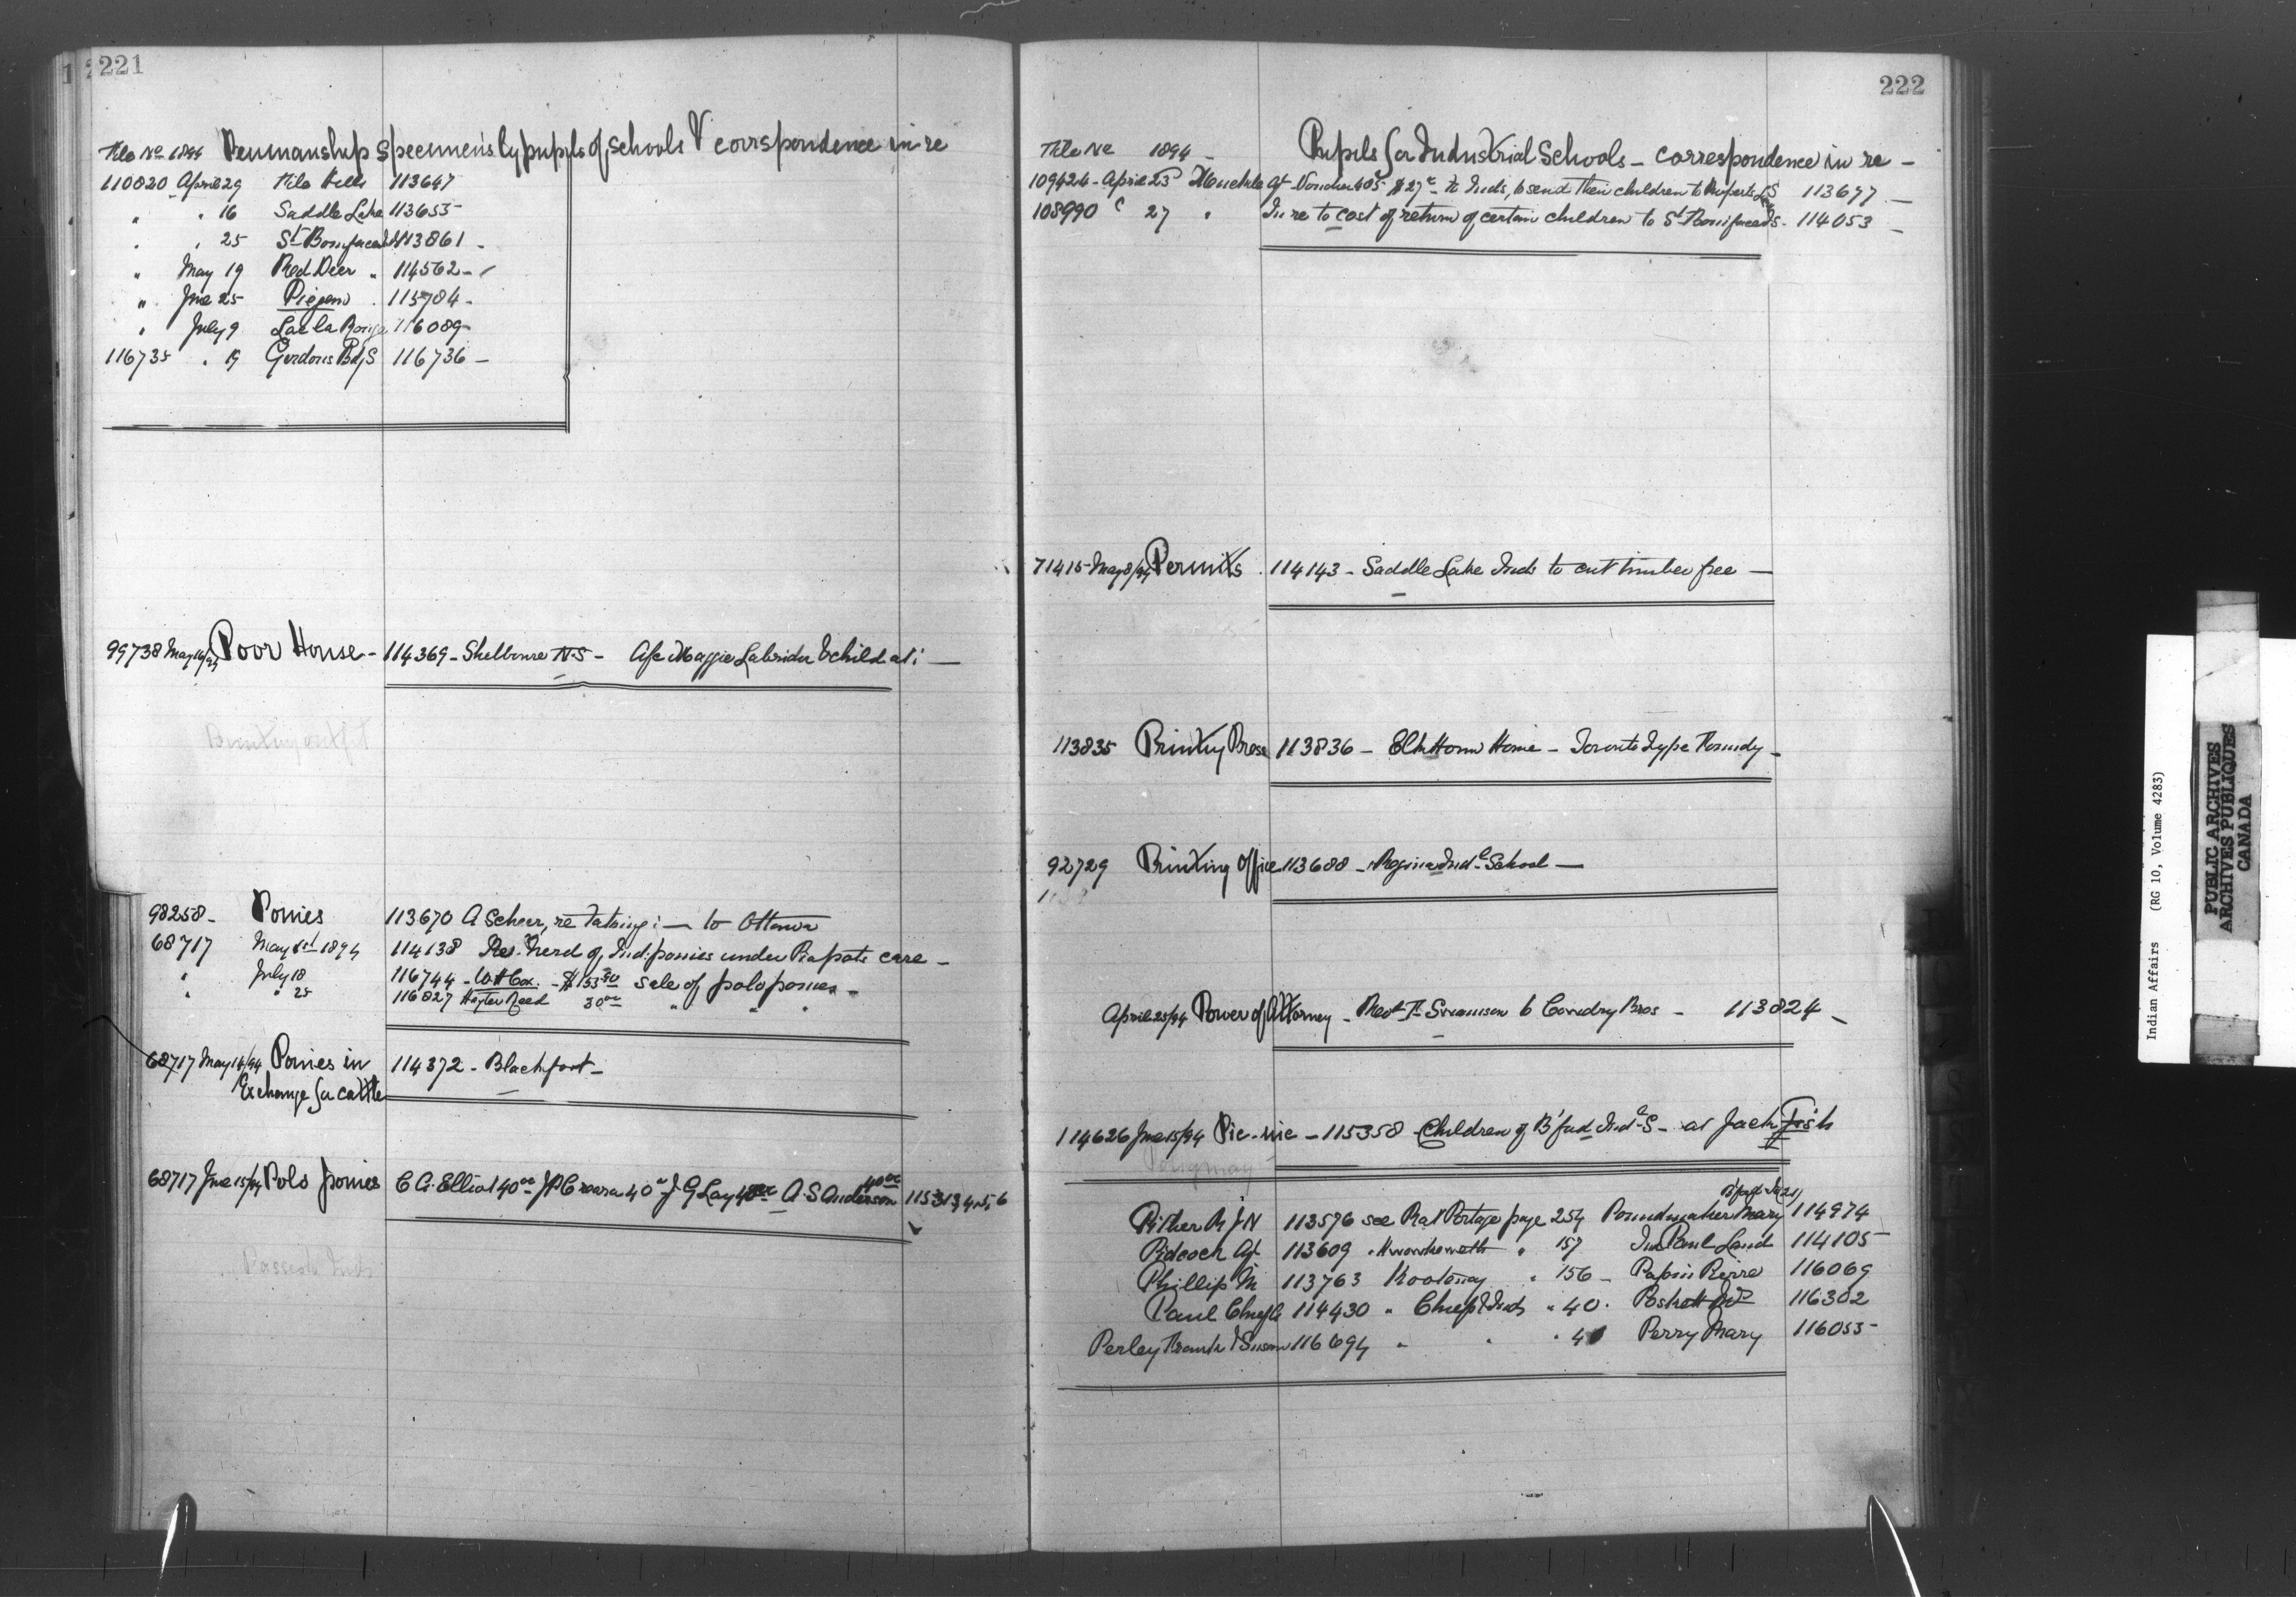 221
File No 1894 Penmanship Specimens by pupils of Schools & corrspondence in re
110820 April 29 File Hills 113647
" " 16 Saddle Lake 113653
" " 25 St Boniface 113861 -
" May 19 Red Deer " 114562 -
" June 25 Piegan " 115784 -
" July 9 Lac la Ronge 116089
116735 " 19 Gordons Bdg S 116736 -
99738 May 16/94 Poor House - 114369 - Shelburne N S - Maggie Labrador & child at: -
Printing outfit
98258 - Ponies 113670 A Scheer, re taking :- to Ottawa
68717 May 1894 114138 Herd of Ind: ponies under Piapots care -
" July 18 116744 - W H Cox - $ 153 sale of polo ponies -
" " 25 116827 Hayter Reed 30 00 " " "
68717 May 14/94 Ponies in 114372 - Blackfoot -
Exchange for cattle
68717 June 15/94 Polo ponies C G Elliot 40 00 40 J G Lay A S Anderson 40 00 1153
222
File No 1894 - Pupils for Industrial Schools - correspondence in re -
109424 - April 23 Agt Voucher 405 $ 27 to Inds, to send their children to Ruperts L S 113677 -
108990 27 " In re to cost of return of certain children to St Boniface I S - 114053 -
71415 May 8/94 Permits 114143 - Saddle Lake Inds to cut timber free -
113835 Printing Press 113836 - Elkhorn Home - Toronto Type Foundry -
92729 Printing Office 113688 - Regina Indl School -
April 25/94 Power of Attorney - Swanson to Cowdry Bros - 113824 -
114626 June 15/94 Pic-nic - 115358 - Children of B'ford Indl S - at Jack Fish
B'ford
Pither R J N 113576 see Rat Portage page 254 Poundmaker Mary 114974
Pidcock Agt 113609 " Kwawkewlth " 157 Paul Land 114105
Phillip M 113763 Kootenay " 156 - Papin Pierre 116069
Paul Chief 114430 " Chiefs & Inds " 40 . Poskett 116302
Perley Frank & Susan 116694 " " " Perry Mary 116055
Indian Affairs (RG 10, Volume 4283)
PUBLIC ARCHIVES
ARCHIVES PUBLIQUES
CANADA